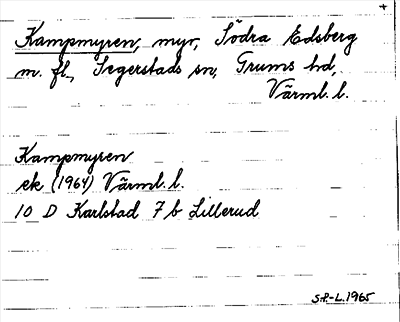 +
Kampmyren, myr, Södra Edsberg
m. fl., Segerstads sn, Grums hd,
Värml. l.
Kampmyren
ek (1964) Värml. l.
10 D Karlstad 7 b Lillerud
S.P-L. 1965